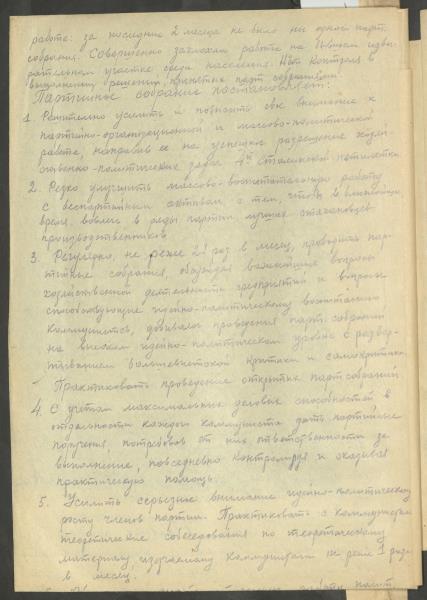 работе: за последние 2 месяца не было ни одного парт.
собрания. Совершенно заглохла работа на бывшем изби-
рательном участке среди населения. Нет контроля в
выполнении решений, принятых парт. собраниями.
Партийное собрание постановляет:
1. Решительно усилить и повысить свое внимание к
партийно-организационной и массово-политической
работе, направив ее на успешное разрешение хозяй-
ственно-политических задач 4й Сталинской пятилетки.
2. Резко улучшить массово-воспитательную работу
с беспартийным активом с тем, чтобы в ближайшее
время вовлечь в ряды партии лучших стахановцев
производственников.
3. Регулярно, не реже 2х раз в месяц, проводить пар-
тийные собрания, обсуждая важнейшие вопросы
хозяйственной деятельности предприятий и вопросы
способствующие идейно-политическому воспитанию
коммунистов, добиваясь проведения парт. собраний
на высоком идейно-политическом уровне с развер-
тыванием большевистской критики и самокритики.
Практиковать проведение открытых партсобраний.
4. С учетом максимальных деловых способностей в
отдельности каждого коммуниста дать партийные
поручения, потребовав от них ответственности за
выполнение, повседневно контролируя и оказывая
практическую помощь.
5. Усилить серьезное внимание идейно-политическому
росту членов партии. Практиковать с коммунистами
теоретические собеседования по теоретическому
материалу, изучаемому коммунистами не реже 1 раза
в месяц.